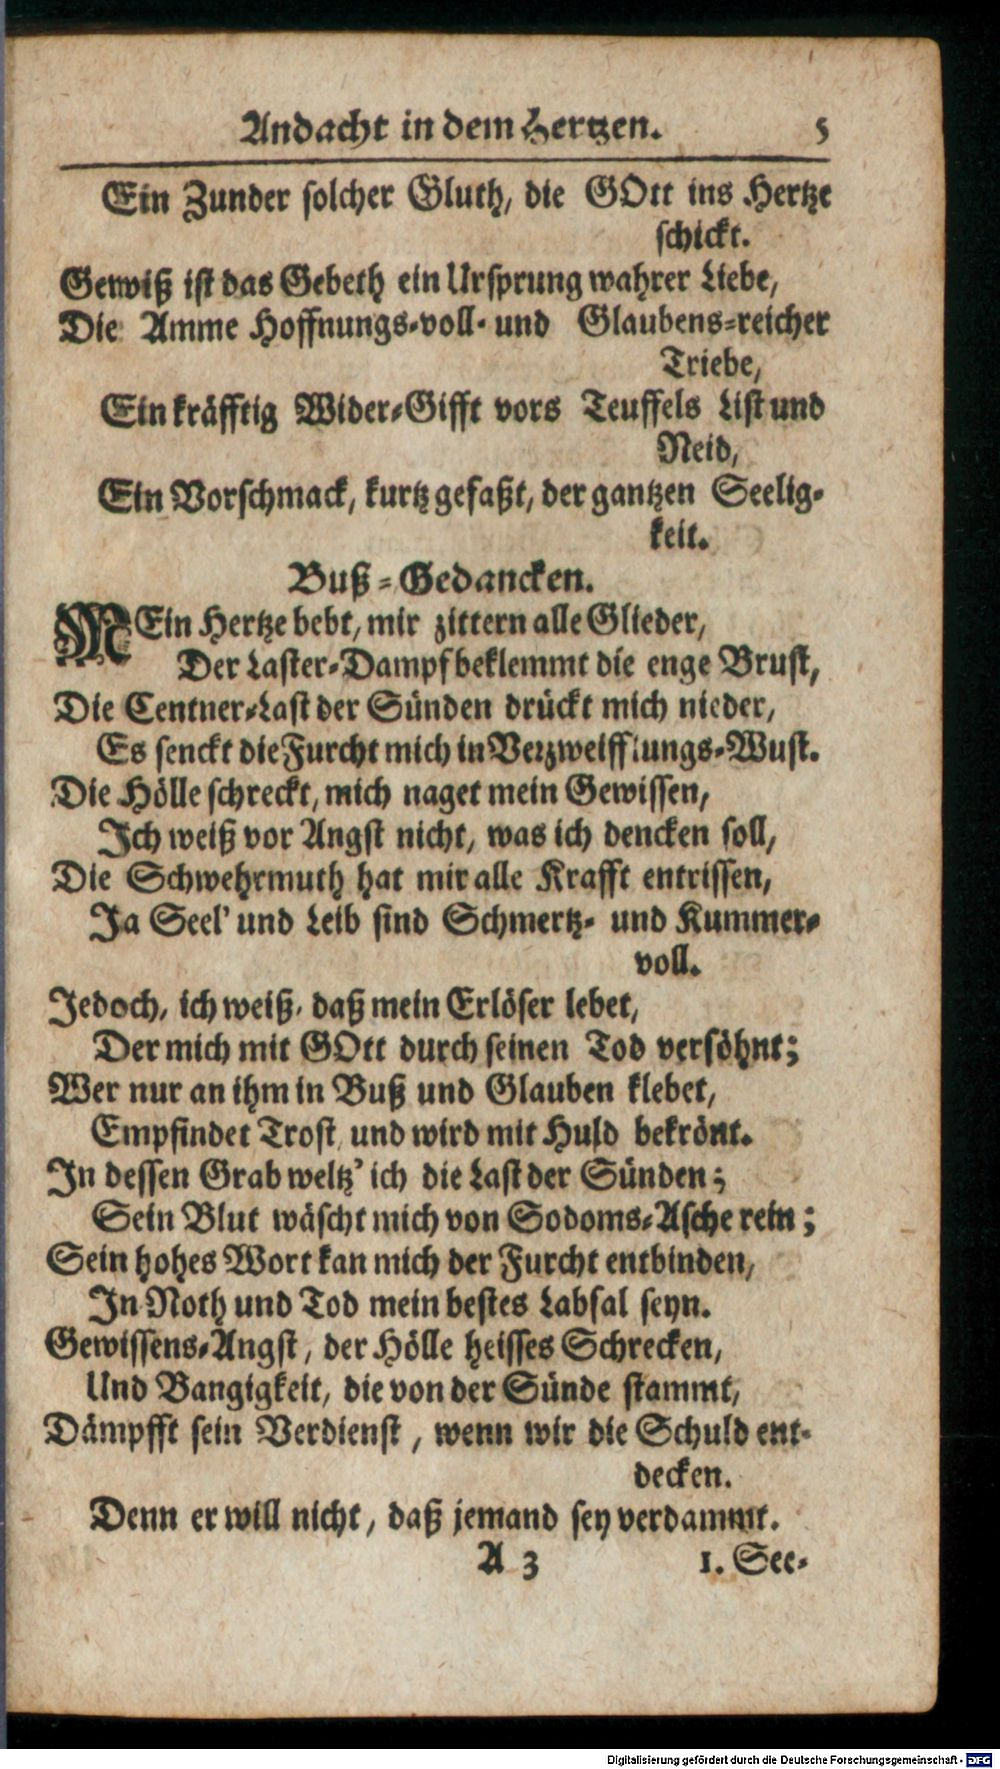 Andacht in dem Hertzen. 5
Ein Zunder solcher Gluth, die GOtt ins Hertze
schickt.
Gewiß ist das Gebeth ein Ursprung wahrer Liebe,
Die Amme Hoffnungs-voll- und Glaubens-reicher
Triebe,
Ein kräfftig Wider-Gifft vors Teuffels List und
Neid,
Ein Vorschmack, kurtz gefaßt, der gantzen Seelig-
keit.
Buß-Gedancken.
MEin Hertze bebt, mir zittern alle Glieder,
Der Laster-Dampf beklemmt die enge Brust,
Die Centner-Last der Sünden drückt mich nieder,
Es senckt die Furcht mich in Verzweifflungs-Wust.
Die Hölle schreckt, mich naget mein Gewissen,
Ich weiß vor Angst nicht, was ich dencken soll,
Die Schwehrmuth hat mir alle Krafft entrissen,
Ja Seel' und Leib sind Schmertz- und Kummer-
voll.
Jedoch, ich weiß, daß mein Erlöser lebet,
Der mich mit GOtt durch seinen Tod versöhnt;
Wer nur an ihm in Buß und Glauben klebet,
Empfindet Trost und wird mit Huld bekrönt.
In dessen Grab weltz' ich die Last der Sünden;
Sein Blut wäscht mich von Sodoms-Asche rein;
Sein hohes Wort kan mich der Furcht entbinden,
In Noth und Tod mein bestes Labsal seyn.
Gewissens-Angst, der Hölle heisses Schrecken,
Und Bangigkeit, die von der Sünde stammt,
Dämpfft sein Verdienst, wenn wir die Schuld ent-
decken.
Denn er will nicht, daß jemand sey verdammt.
A 3 1. See-
Digitalisierung gefördert durch die Deutsche Forschungsgemeinschaft - DFG